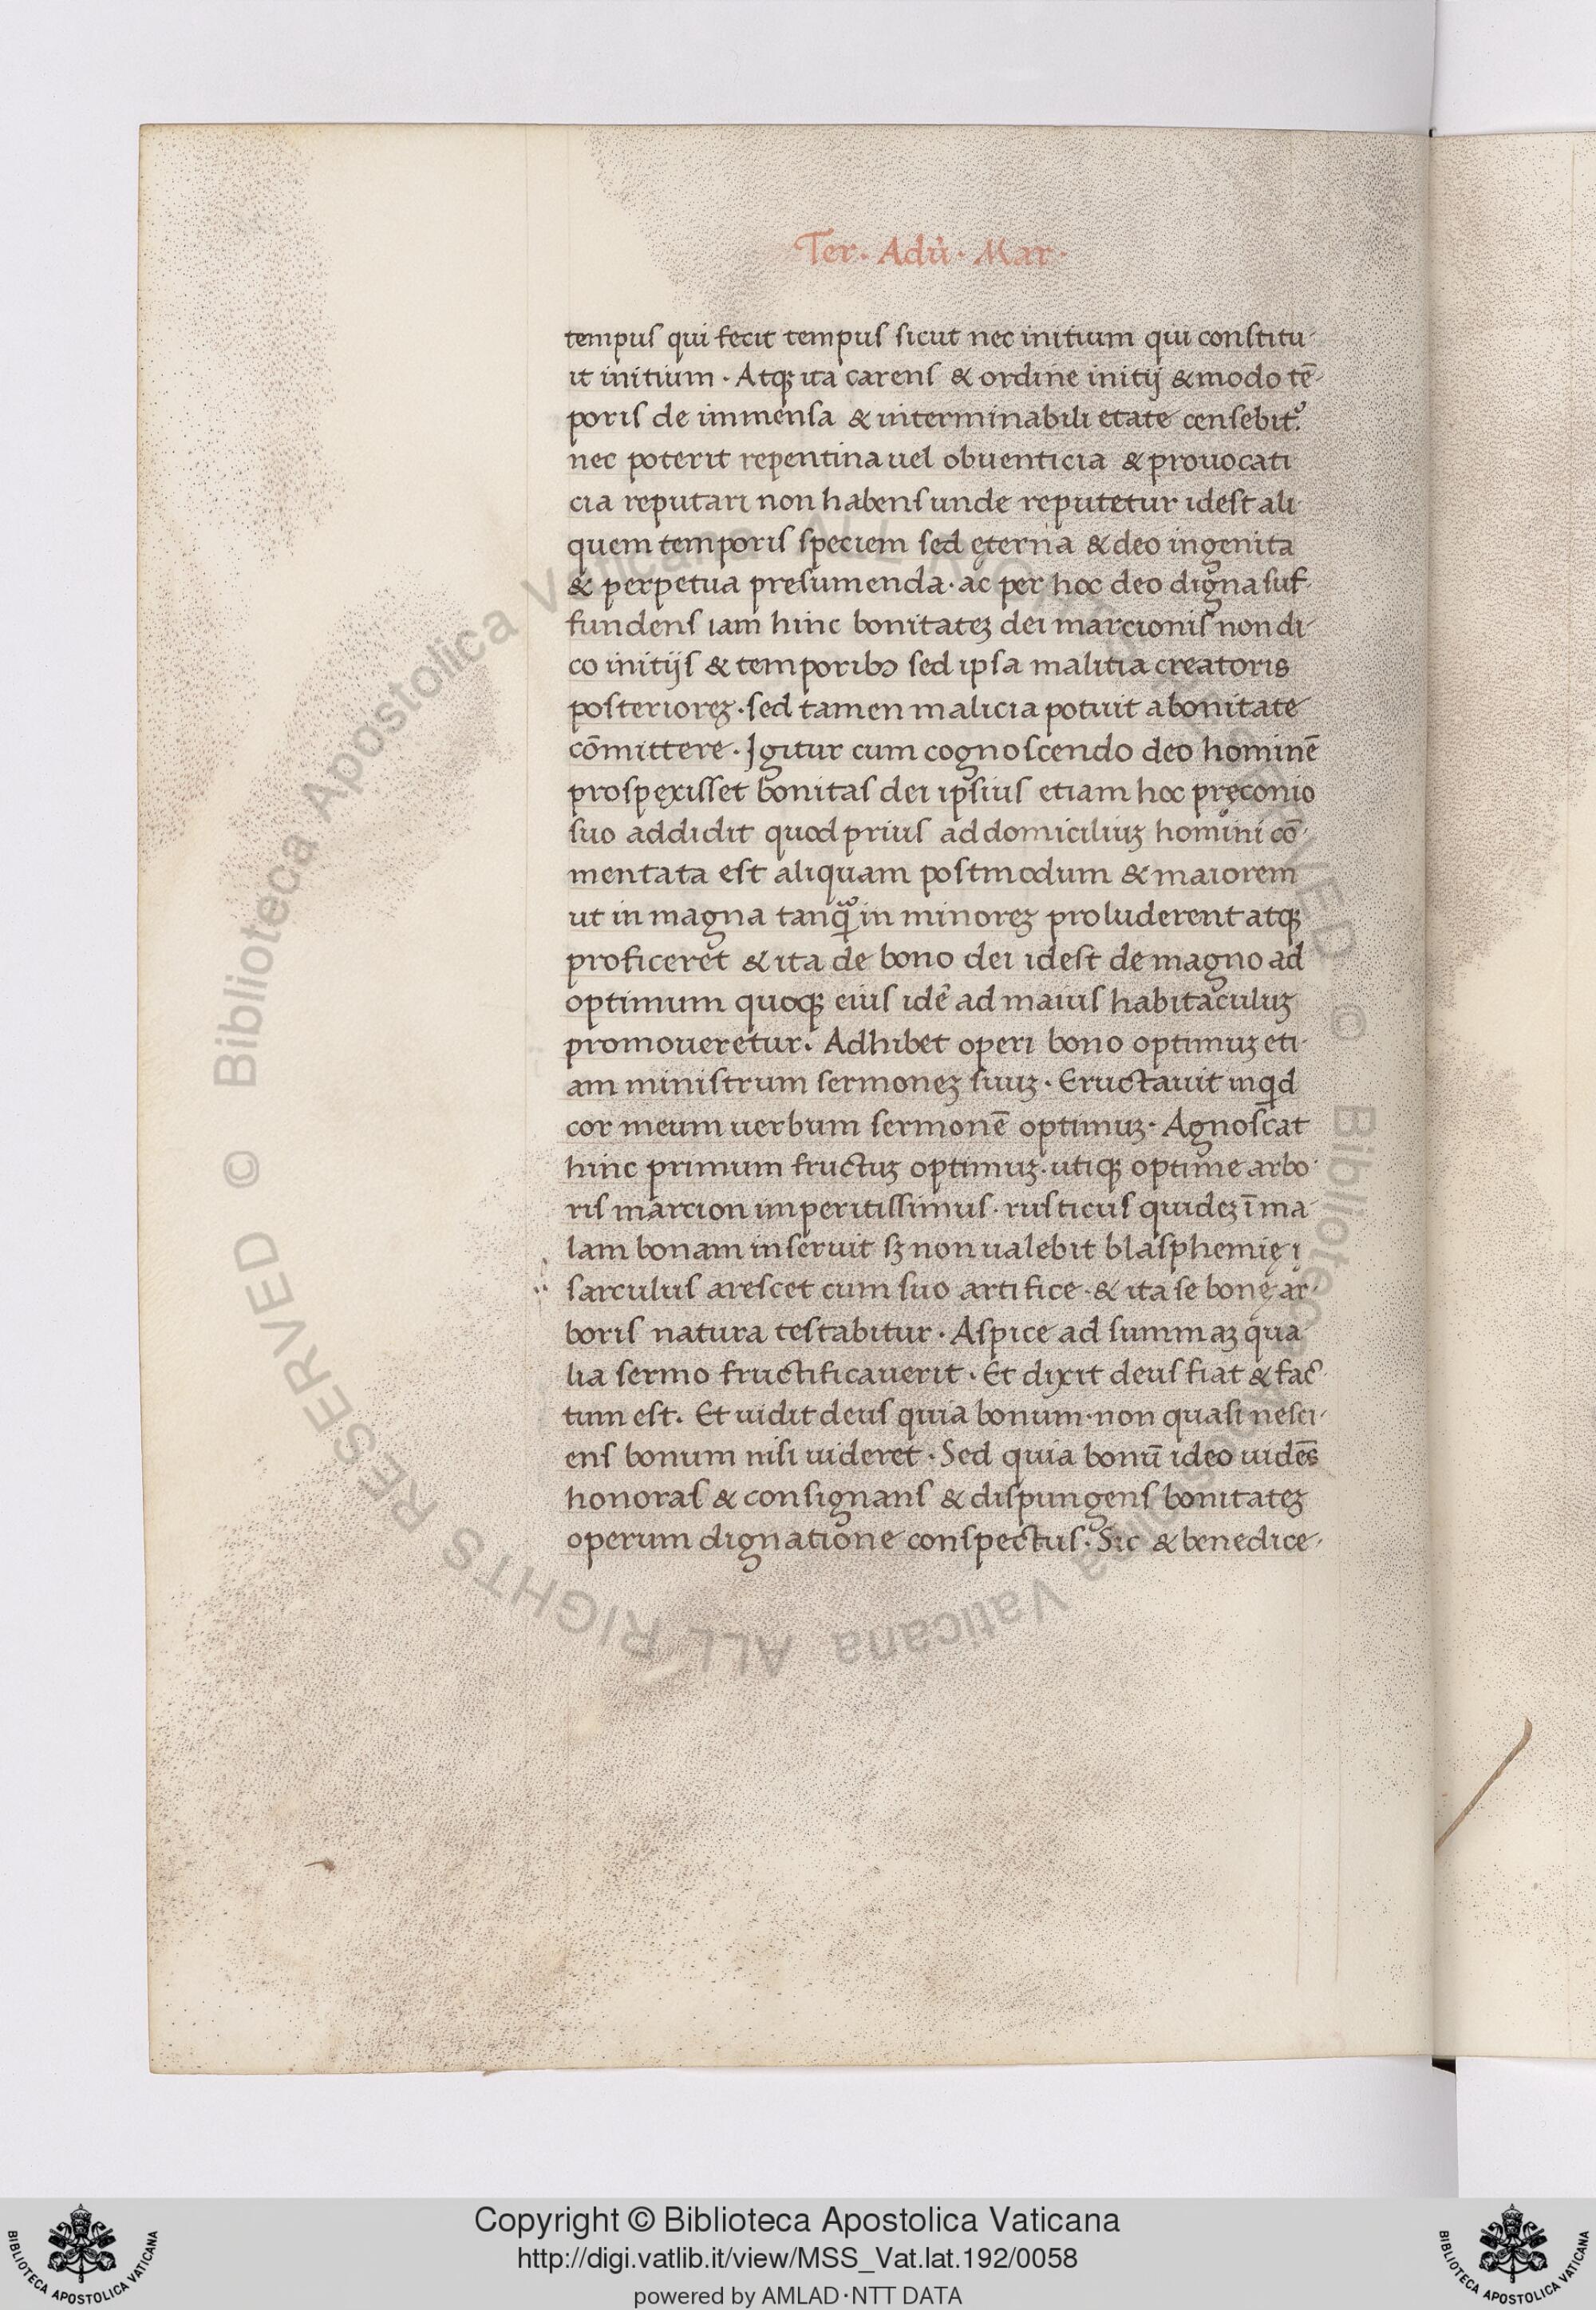 Ter · Adu᷒ · Mar ·
tempus qui fecit tempus sicut nec initium qui constitu-
it initium · Atqꝫ ita carens & ordine initij & modo tē-
poris de immensa & interminabili etate censebit᷒.
nec poterit repentina uel obuenticia & prouocati
cia reputari non habens unde reputetur idest ali
quem temporis speciem sed ęterna & deo ingenita
& perpetua presumenda · ac per hoc deo digna suf-
fundens iam hinc bonitateꝫ dei marcionis non di-
co initijs & temporibꝰ sed ipsa malitia creatoris
posterioreꝫ · sed tamen malicia potuit a bonitate
cōmittere · Igitur cum cognoscendo deo hominē
prospexisset bonitas dei ipsius etiam hoc pręconio
suo addidit quod prius ad domiciliuꝫ homini cō-
mentata est aliquam postmodum & maiorem
ut in magna tanꝗ᷒ in minoreꝫ proluderent atqꝫ
proficeret & ita de bono dei idest de magno ad
optimum quoqꝫ eius idē ad maius habitaculuꝫ
promoueretur. Adhibet operi bono optimuꝫ eti-
am ministrum sermoneꝫ suuꝫ · Eructauit inꝗd
cor meum uerbum sermonē optimuꝫ · Agnoscat
hinc primum fructuꝫ optimuꝫ · utiqꝫ optime arbo-
ris marcion imperitissimus · rusticus quideꝫ ī ma-
lam bonam inseruit sꝫ non ualebit blasphemię i
sarculus arescet cum suo artifice · & ita se bonę ar-
boris natura testabitur · Aspice ad summaꝫ qua
lia sermo fructificauerit · Et dixit deus fiat & fac-
tum est. Et uidit deus quia bonum · non quasi nesci-
ens bonum nisi uideret · Sed quia bonū ideo uidēs
honoras & consignans & dispungens bonitateꝫ
operum dignatione conspectus · Sic & benedice-
© Biblioteca Apostolica Vaticana ALL RIGHTS RESERVED © Biblioteca Apostolica Vaticana ALL RIGHTS RESERVED
Copyright © Biblioteca Apostolica Vaticana
http://digi.vatlib.it/view/MSS_Vat.lat.192/0058
powered by AMLAD·NTT DATA
BIBLIOTECA APOSTOLICA VATICANA
BIBLIOTECA APOSTOLICA VATICANA